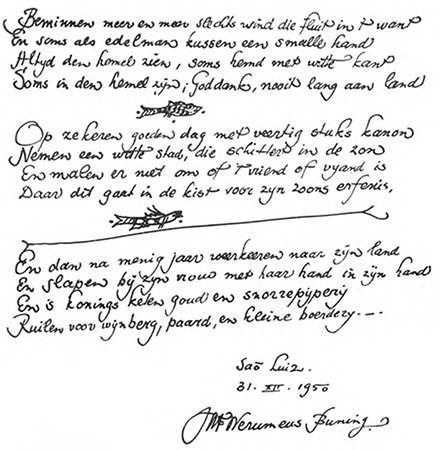 Beminnen meer en meer slechts wind die fluit in 't want
En soms als edelman kussen een smalle hand
Altyd den hemel zien, soms hemd met witte kant
Soms in den hemel zijn; Goddank, nooit lang aan land
Op zekeren goeden dag met veertig stuks kanon
Nemen een witte stad, die schittert in de zon
En malen er niet om of 't vriend of vyand is
Daar dit gaat in de kist voor zyn zoons erfenis.
En dan na menig jaar weerkeeren naar zijn land
En slapen bij zyn vrouw met haar hand in zijn hand
En 's konings keten goud en snorrepijperij
Ruilen voor wijnberg, paard, en kleine boerdery.—.
Saō Luiz.
31. XII. 1950
JWF Werumeus Buning.